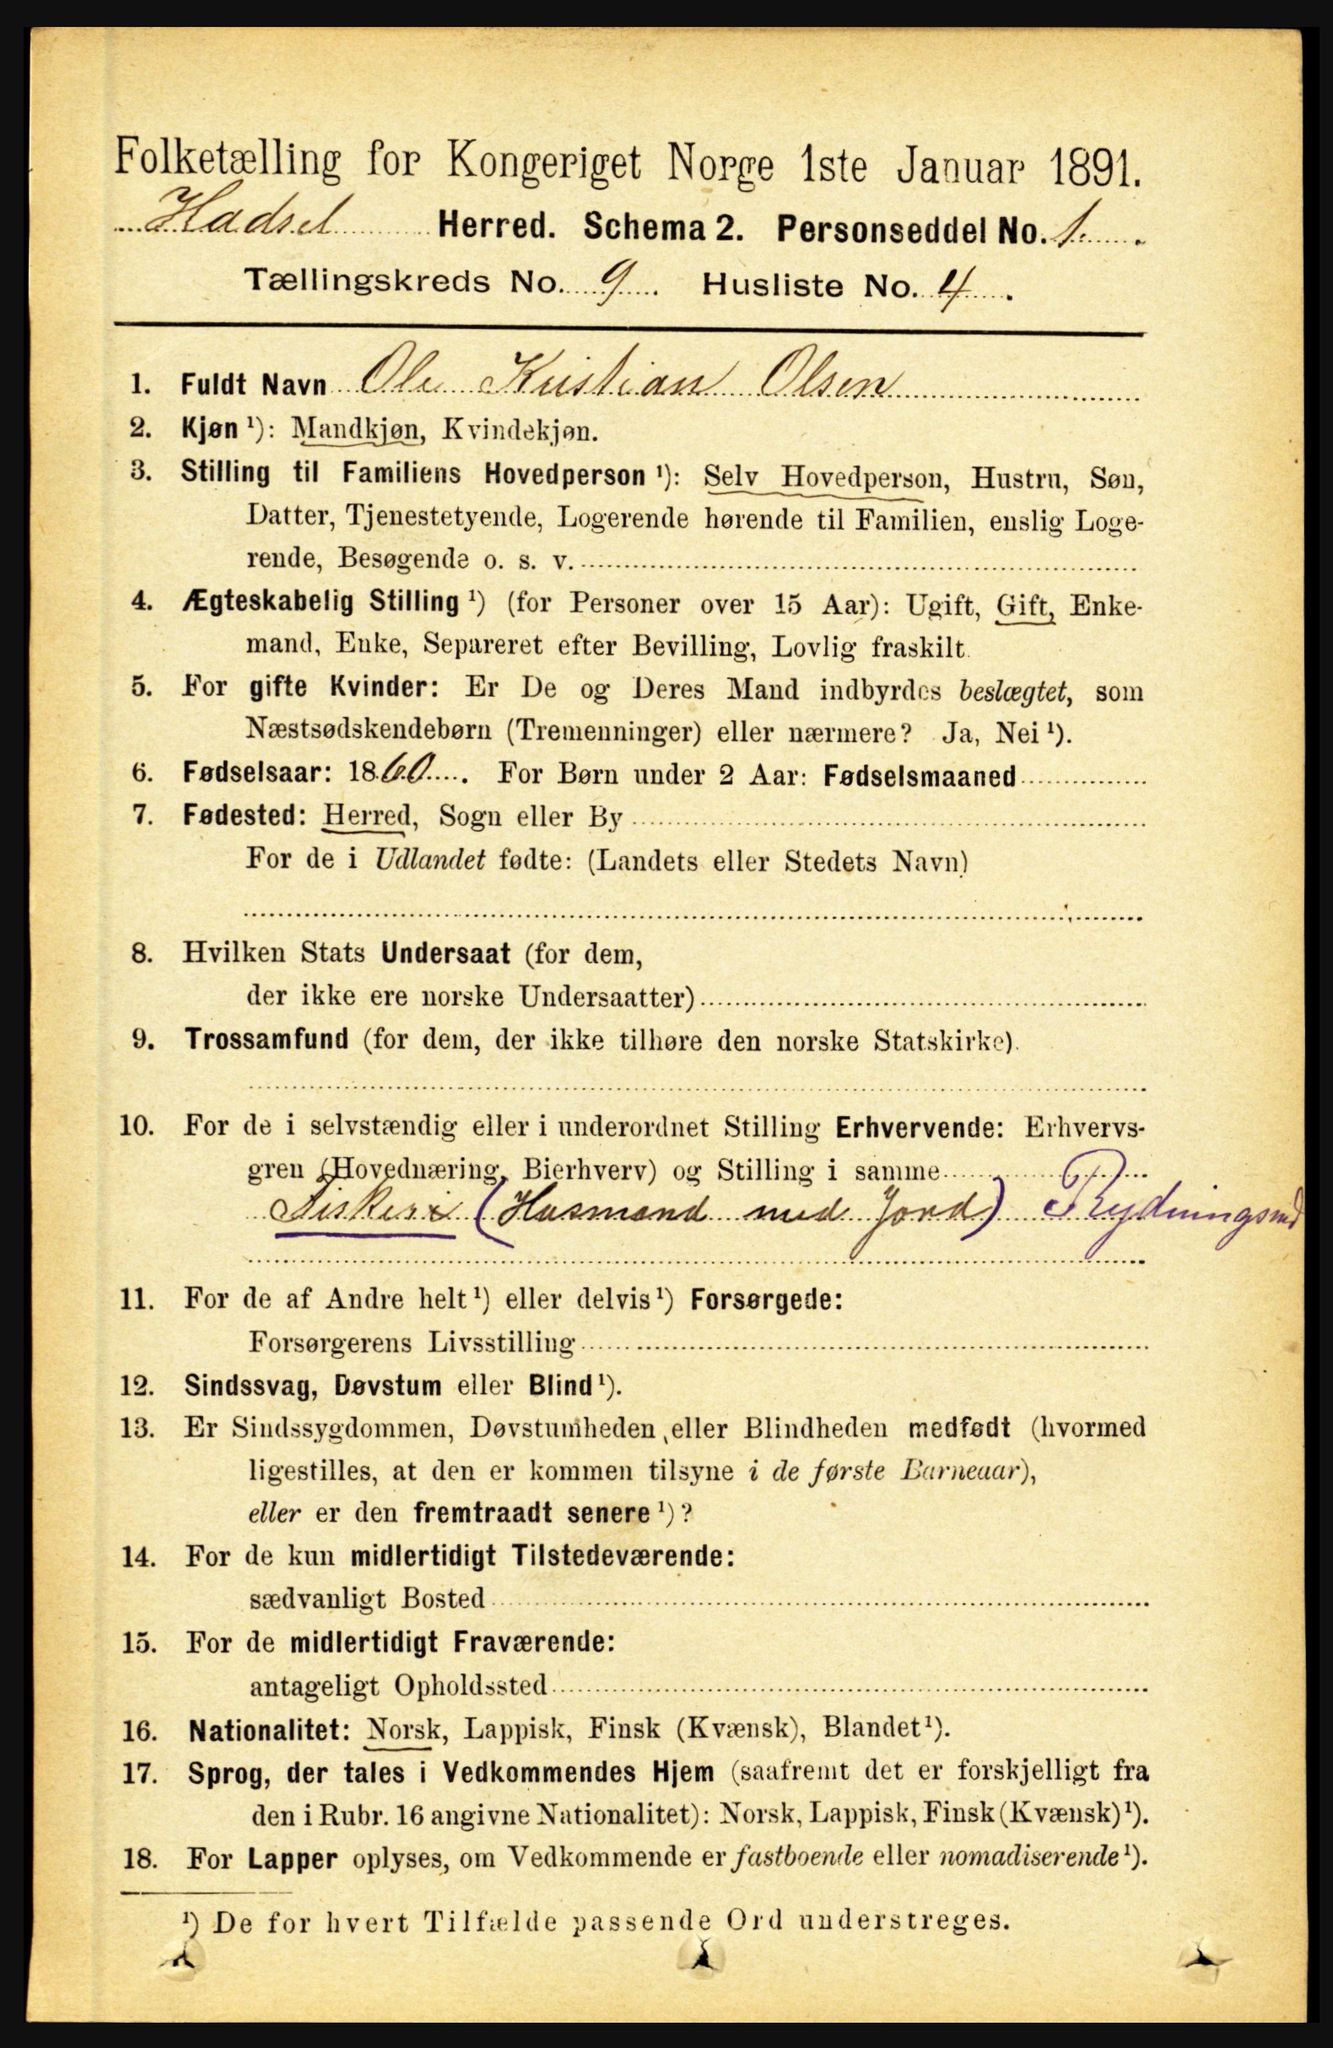 Folketælling for Kongeriget Norge 1ste Januar 1891.
Hadsel Herred. Schema 2. Personseddel No. 1.
Tællingskreds No. 9. Husliste No. 4.
1. Fuldt Navn Ole Kristian Olsen
2. Kjøn ¹): Mandkjøn, Kvindekjøn.
3. Stilling til Familiens Hovedperson ¹): Selv Hovedperson, Hustru, Søn,
Datter, Tjenestetyende, Logerende hørende til Familien, enslig Loge-
rende, Besøgende o. s. v.
4. Ægteskabelig Stilling ¹) (for Personer over 15 Aar): Ugift, Gift, Enke-
mand, Enke, Separeret efter Bevilling, Lovlig fraskilt
5. For gifte Kvinder: Er De og Deres Mand indbyrdes beslægtet, som
Næstsødskendebørn (Tremenninger) eller nærmere? Ja, Nei ¹).
6. Fødselsaar: 1860. For Børn under 2 Aar: Fødselsmaaned
7. Fødested: Herred, Sogn eller By
For de i Udlandet fødte: (Landets eller Stedets Navn)
8. Hvilken Stats Undersaat (for dem,
der ikke ere norske Undersaatter)
9. Trossamfund (for dem, der ikke tilhøre den norske Statskirke).
10. For de i selvstændig eller i underordnet Stilling Erhvervende: Erhvervs-
gren (Hovednæring, Bierhverv) og Stilling i samme
Fiskeri (Husmand med Jord) Rydningsmd
11. For de af Andre helt ¹) eller delvis ¹) Forsørgede:
Forsørgerens Livsstilling
12. Sindssvag, Døvstum eller Blind ¹).
13. Er Sindssygdommen, Døvstumheden eller Blindheden medfødt (hvormed
ligestilles, at den er kommen tilsyne i de første Barneaar),
eller er den fremtraadt senere ¹)?
14. For de kun midlertidigt Tilstedeværende:
sædvanligt Bosted
15. For de midlertidigt Fraværende:
antageligt Opholdssted
16. Nationalitet: Norsk, Lappisk, Finsk (Kvænsk), Blandet ¹).
17. Sprog, der tales i Vedkommendes Hjem (saafremt det er forskjelligt fra
den i Rubr. 16 angivne Nationalitet): Norsk, Lappisk, Finsk (Kvænsk) ¹).
18. For Lapper oplyses, om Vedkommende er fastboende eller nomadiserende ¹).
¹) De for hvert Tilfælde passende Ord understreges.